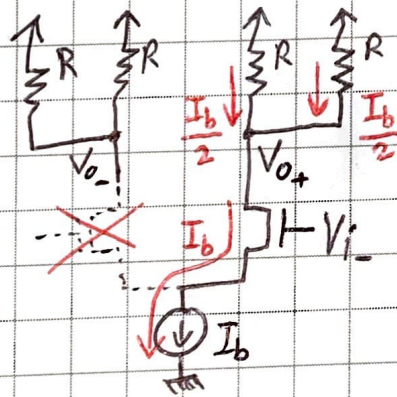 R R R R
I_b/2 I_b/2
V_o- V_o+
I_b V_i-
I_b